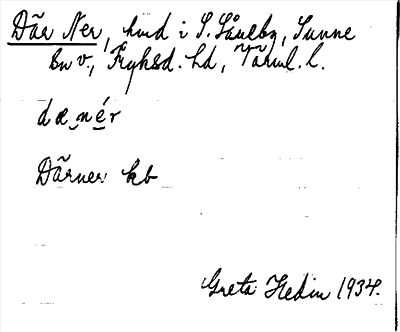 Där Ner, hmd i S. Låulby, Sunne
sn v., Fryksd. hd, Värml. l.
dæ nér
Därner kb
Greta Hedin 1934.